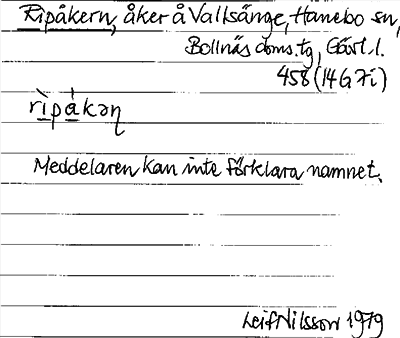 Ripåkern, åker å Vallsänge, Hanebo sn,
Bollnäs doms.tg, Gävl. l.
458 (14G 7i)
rìpákəɳ
Meddelaren kan inte förklara namnet.
Leif Nilsson 1979